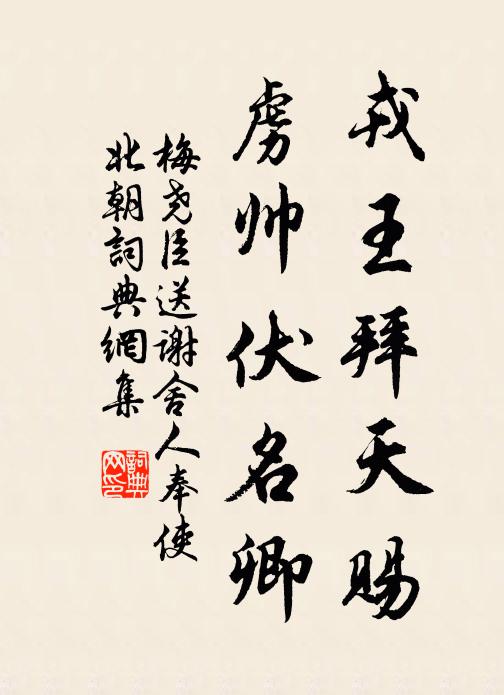 戎王拜天赐
虏帅伏名卿
梅尧臣送谢舍人奉使
北朝词典网集
词典网印